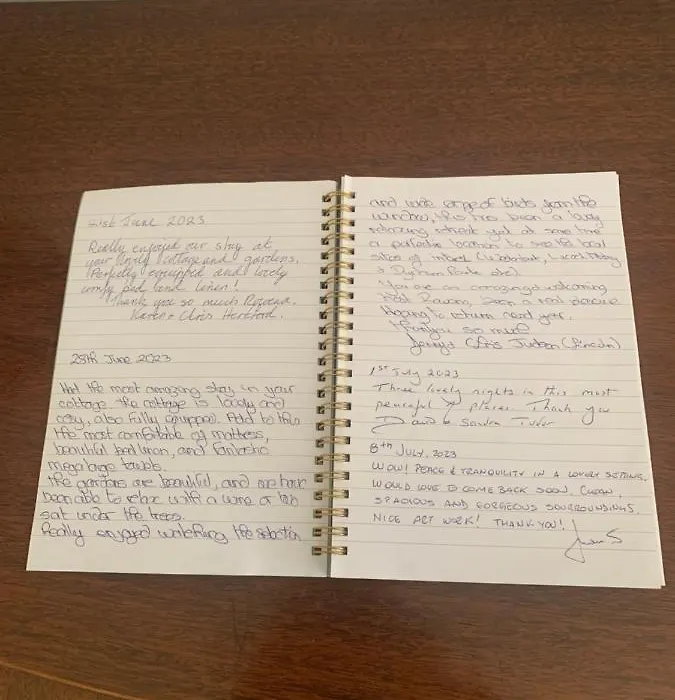 21st June 2023
Really enjoyed our stay at
your lovely cottage and gardens.
Perfectly equipped and lovely
comfy bed and linen!
Thank you so much Rowena.
Karen & Chris Hertford.
28th June 2023
Had the most amazing stay in your
cottage. the cottage is lovely and
cosy, also fully equipped. Add to this
the most comfortable of mattress,
beautiful bed linen, and fantastic
mega large towels.
the gardens are beautiful, and we have
been able to relax with a wine or two
sat under the trees.
Really enjoyed watching the selection
and wide range of birds from the
window, this has been a lovely
relaxing retreat yet at same time
a perfect location to see the local
sites of interest
You are an amazing welcoming
host Rowena, been a real pleasure
Hoping to return next year.
Thankyou so much
Jenny & Chris Judson (Lincoln)
1st July 2023
Three lovely nights in this most
peaceful of places. Thank you
David & Sandra Tudor
8th JULY, 2023
WOW! PEACE & TRANQUILITY IN A LOVELY SETTING.
WOULD LOVE TO COME BACK SOON. CLEAN,
SPACIOUS AND GORGEOUS SOURROUNDINGS
NICE ART WORK! THANK YOU!